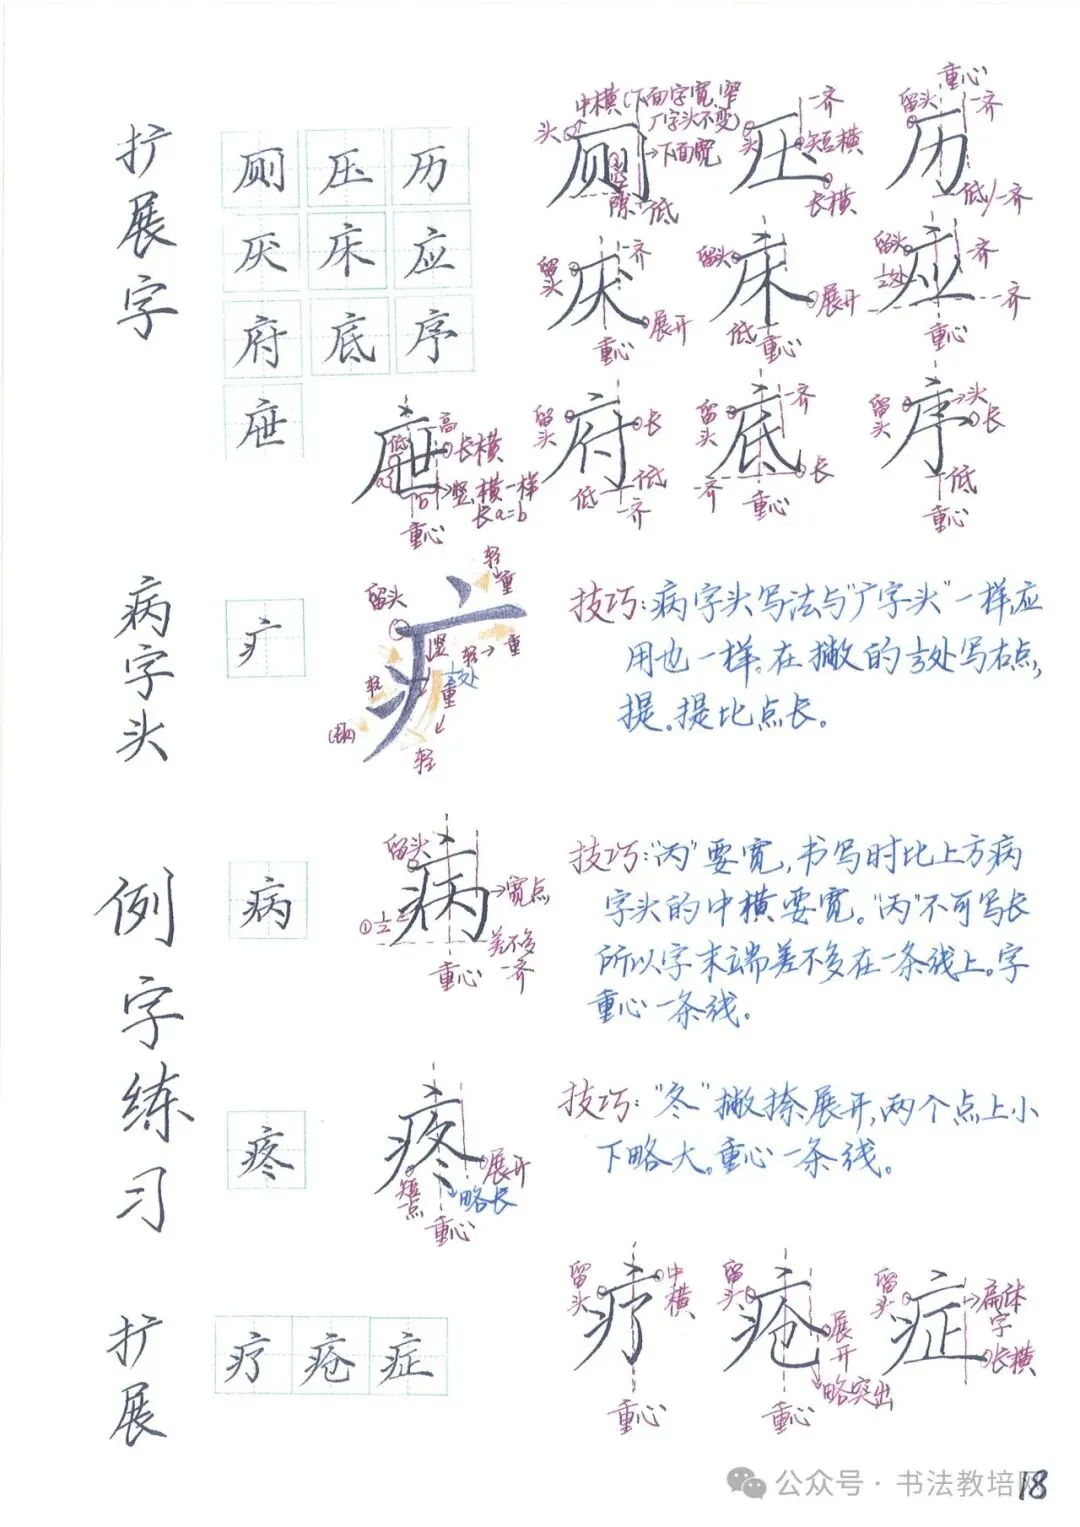 扩展字
厕 压 历
厌 床 应
府 底 序
庶
中横(下面字宽,窄
厂字头不变)
头
厕
→下面宽
隙
低
一齐
头
压
短横
长横
重心
留头
一齐
历
低/一齐
留头
齐
厌
展开
重心
留头
床
展开
低
重心
留头
齐
½处
应
齐
重心
高
低
长横
→竖、横一样
长a=b
重心
留头
府
长
低
低
齐
留头
齐
底
长
齐
重心
留头
→头
长
序
低
重心
病字头
疒
留头
轻
重
竖
轻→重
轻
重
轻
技巧:病字头写法与“广字头”一样应
用也一样。在撇的⅓处写右点,
提。提比点长。
例字练习
病
留头
病
→宽点
①½
差不多
一齐
重心
技巧:“丙”要宽,书写时比上方病
字头的中横要宽。“丙”不可写长
所以字末端差不多在一条线上。字
重心一条线。
疼
疼
展开
短点
略长
重心
技巧:“冬”撇捺展开,两个点上小
下略大。重心一条线。
扩展
疗 疮 症
留头
疗
中横
重心
留头
疮
展开
略突出
重心
留头
症
扁体字
长横
公众号·书法教培
18